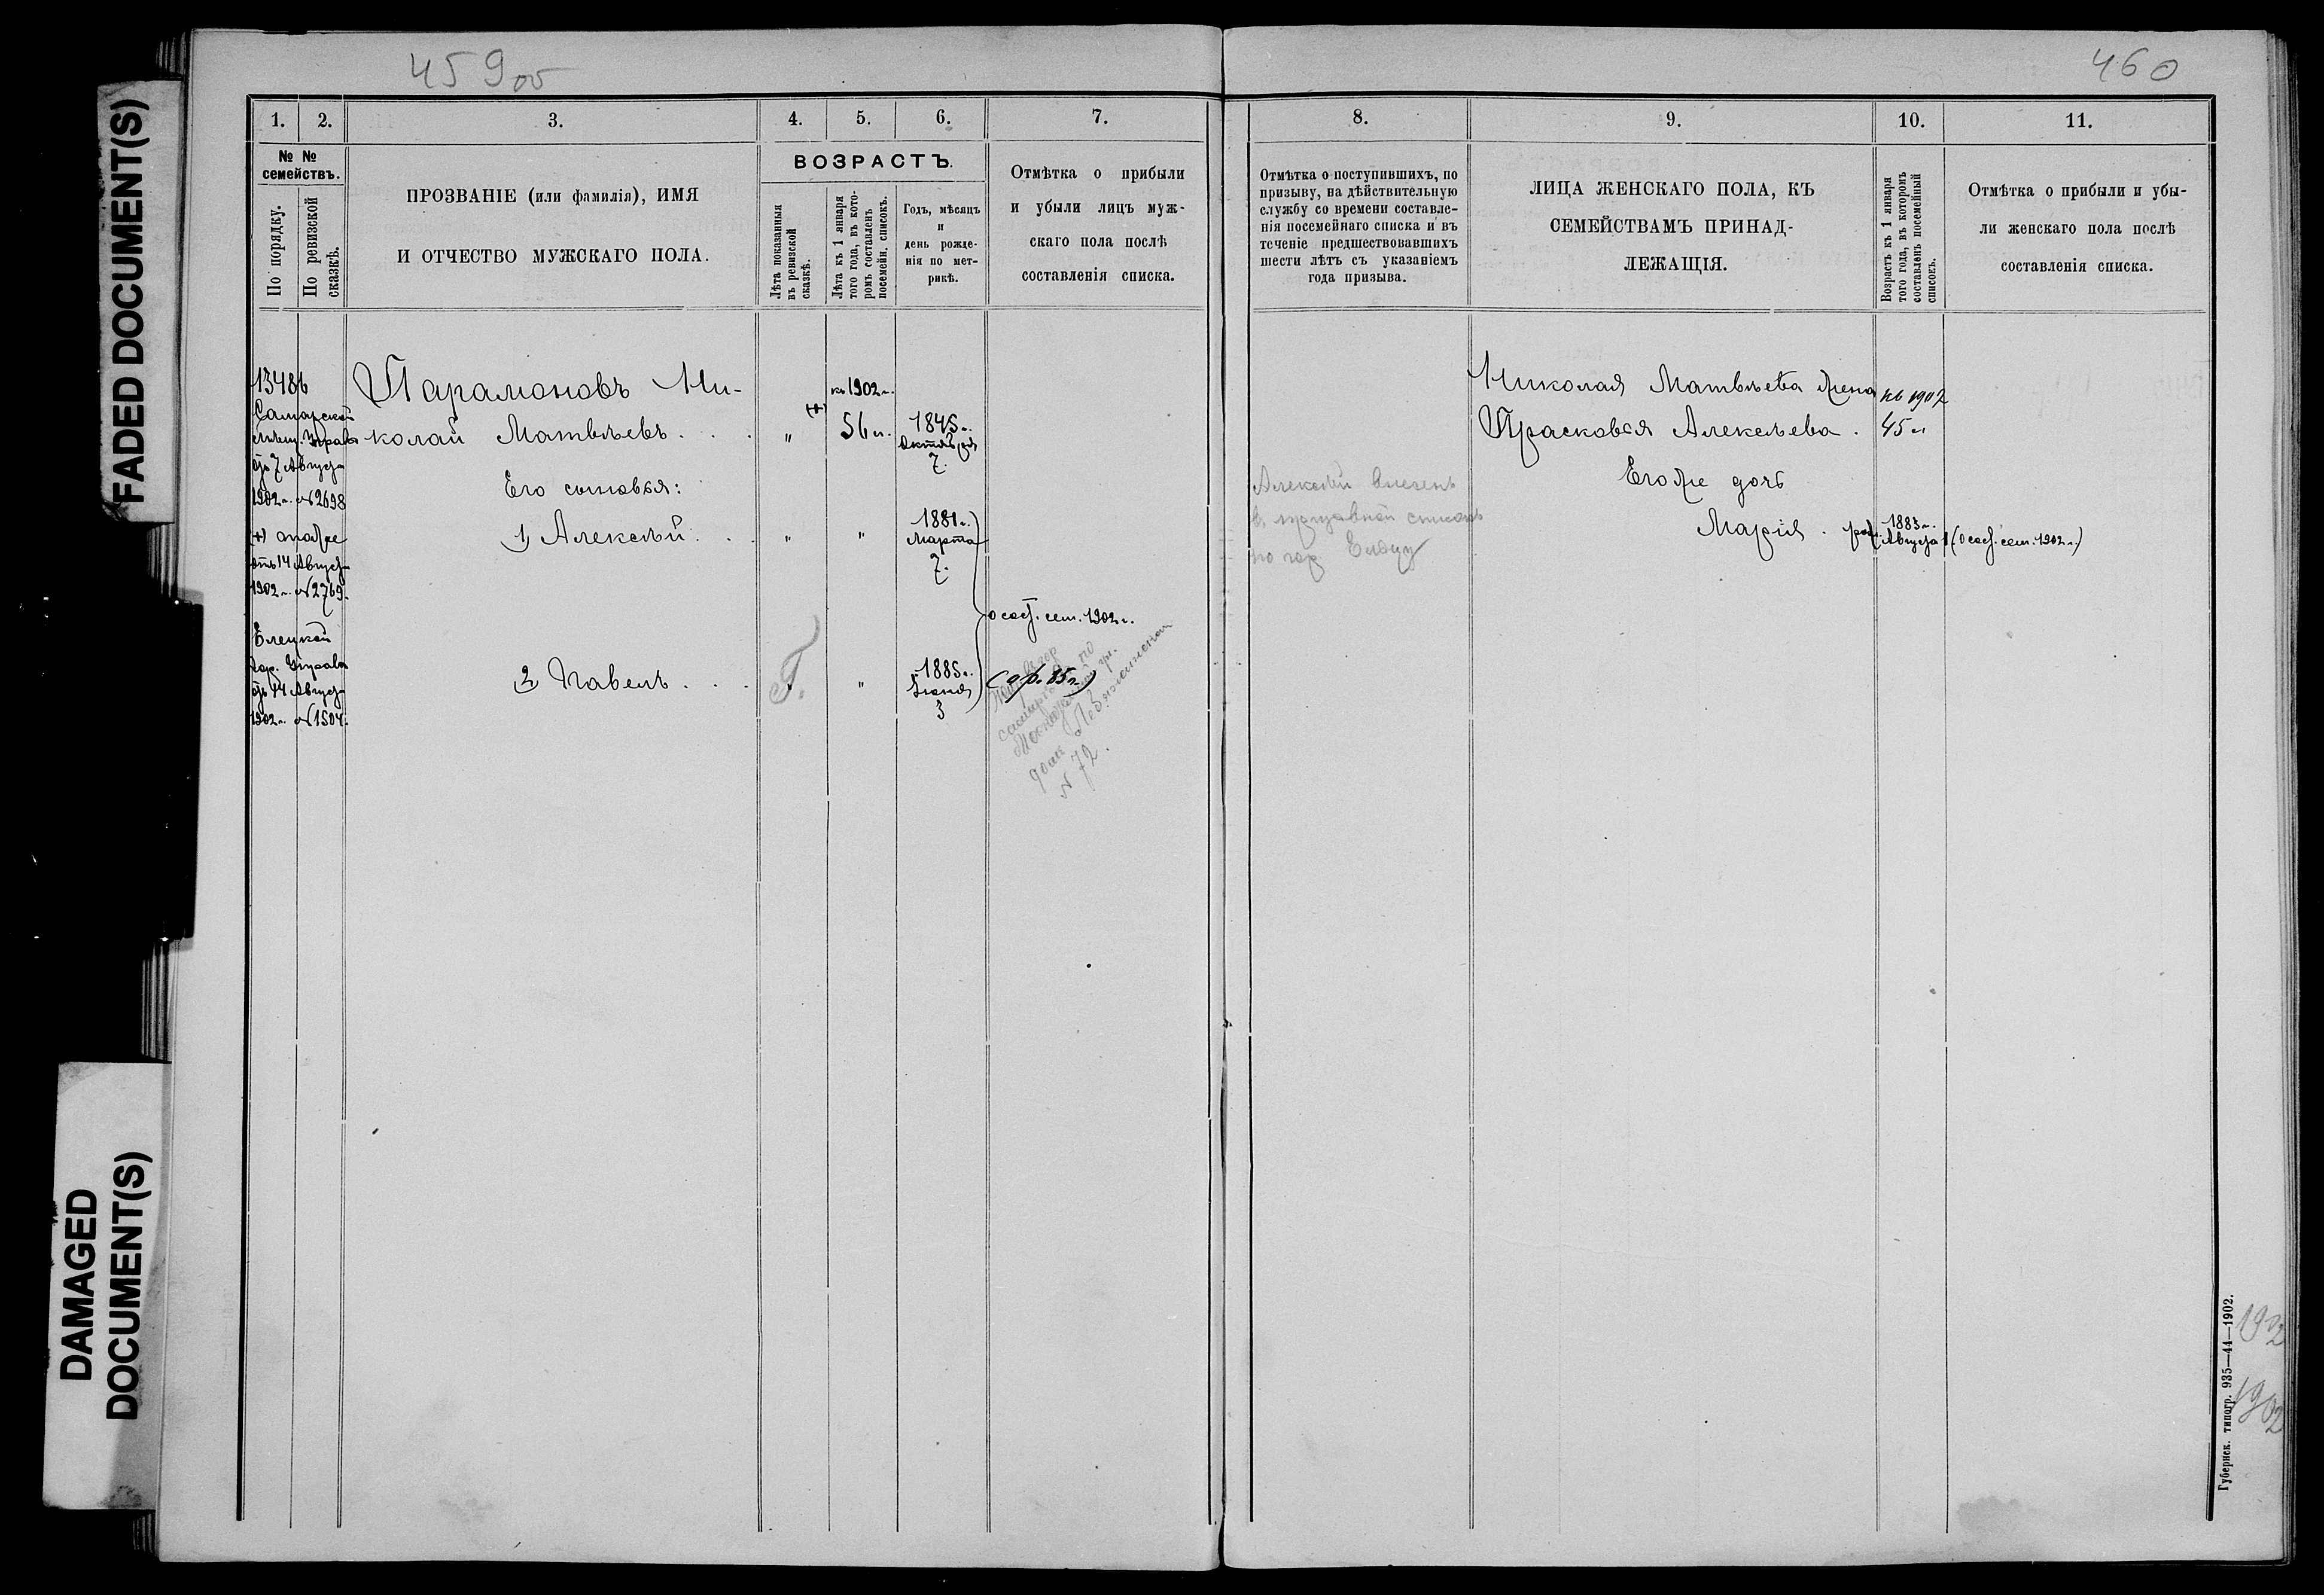 FADED DOCUMENT(S)
DAMAGED
DOCUMENT(S)
459об
1. 2. 3. 4. 5. 6. 7.
№ №
семействъ.
По порядку.
По ревизской
сказкѣ.
ПРОЗВАНІЕ (или фамилія), ИМЯ
И ОТЧЕСТВО МУЖСКАГО ПОЛА.
ВОЗРАСТЪ.
Лѣта показанныя
въ ревизской
сказкѣ.
Лѣта къ 1 января
того года, въ кото-
ромъ составленъ
посемейн. списокъ.
Годъ, мѣсяцъ
и
день рожде-
нія по мет-
рикѣ.
Отмѣтка о прибыли
и убыли лицъ муж-
скаго пола послѣ
составленія списка.
1348б
Самарской
мѣщ. Управы
отъ 7 Августа
1902 г. № 2698
(+) тоже
отъ 14 Августа
1902 г. № 2769.
Елецкой
гор. Управы
отъ 14 Августа
1902 г. № 1504.
Парамоновъ Ни-
колай Матвѣевъ . . . " (+)
къ 1902 г.
56 л.
1845 г.
Октября
7.
Его сыновья:
1) Алексѣй . . . " "
1881 г.
Марта
7.
о сост. сем. 1902 г.
2) Павелъ . . . "
1885 г.
Іюня
3
№ 72.
460
8. 9. 10. 11.
Отмѣтка о поступившихъ, по
призыву, на дѣйствительную
службу со времени составле-
нія посемейнаго списка и въ
теченіе предшествовавшихъ
шести лѣтъ съ указаніемъ
года призыва.
ЛИЦА ЖЕНСКАГО ПОЛА, КЪ
СЕМЕЙСТВАМЪ ПРИНАД-
ЛЕЖАЩІЯ.
Возрастъ къ 1 января
того года, въ которомъ
составленъ посемейный
списокъ.
Отмѣтка о прибыли и убы-
ли женскаго пола послѣ
составленія списка.
Николая Матвѣева жена
Прасковья Алексѣева .
къ 1902
45 л
Его же дочь
Марія . род.
1883 г.
Августа 1
(о сост. сем. 1902 г.)
Алексѣй внесенъ
в призывной списокъ
по гор Ельцу
Губернск. типогр. 935—44—1902.
1902
1902